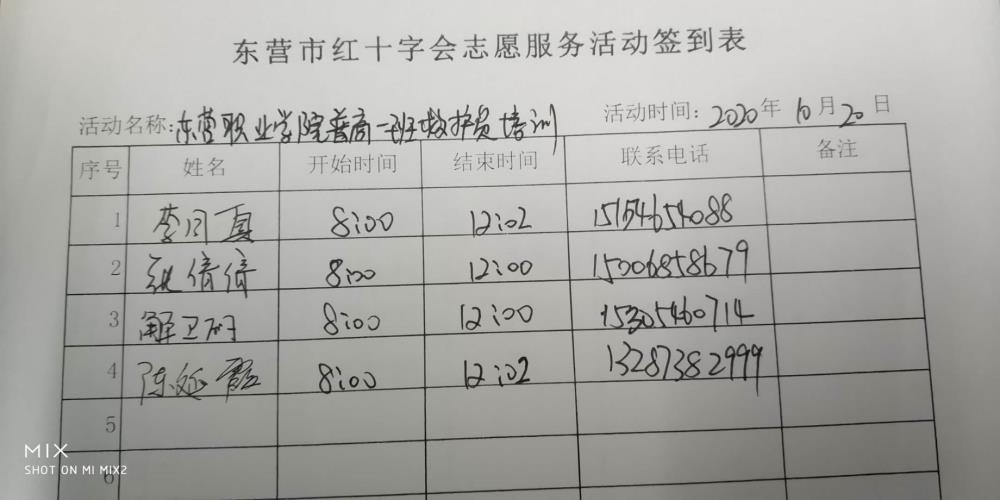 东营市红十字会志愿服务活动签到表
活动名称:东营职业学院普高一班救护员培训 活动时间: 2020年10月20日
序号 姓名 开始时间 结束时间 联系电话 备注
1 李同真 8:00 12:02 15154654088
2 倍倍 8:00 12:00 15006858679
3 解卫 8:00 12:00 15305460714
4 陈延霞 8:00 12:02 13287382999
5
6
MIX
SHOT ON MI MIX2